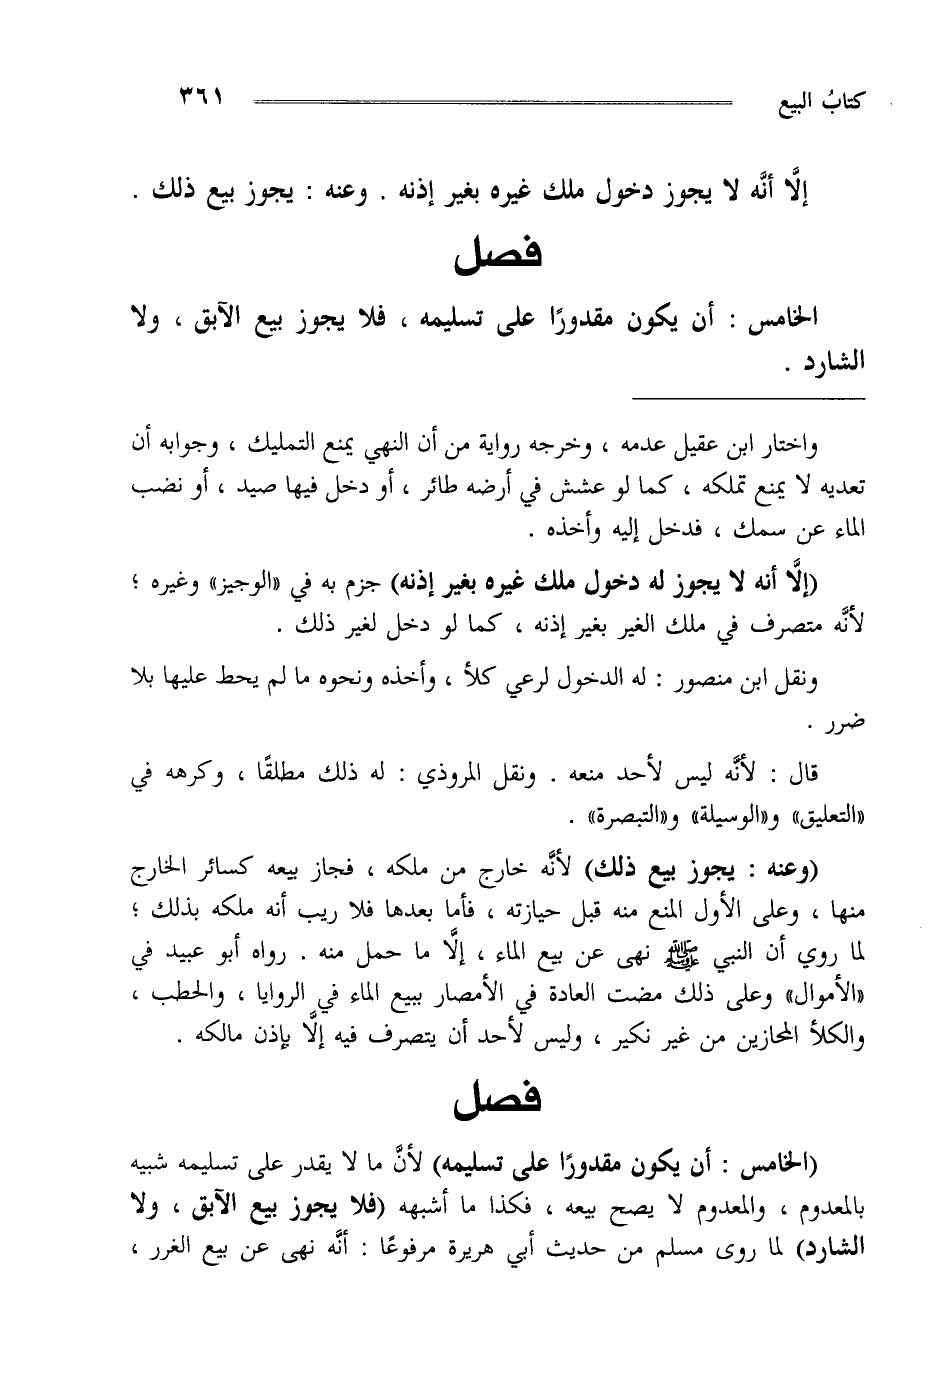 كتابُ البيع ٣٦١
إلَّا أنَّه لا يجوز دخول ملك غيره بغير إذنه . وعنه : يجوز بيع ذلك .
فصل
الخامس : أن يكون مقدورًا على تسليمه ، فلا يجوز بيع الآبق ، ولا
الشارد .
واختار ابن عقيل عدمه ، وخرجه رواية من أن النهي يمنع التمليك ، وجوابه أن
تعديه لا يمنع تملكه ، كما لو عشش في أرضه طائر ، أو دخل فيها صيد ، أو نضب
الماء عن سمك ، فدخل إليه وأخذه .
(إلَّا أنه لا يجوز له دخول ملك غيره بغير إذنه) جزم به في «الوجيز» وغيره ؛
لأنَّه متصرف في ملك الغير بغير إذنه ، كما لو دخل لغير ذلك .
ونقل ابن منصور : له الدخول لرعي كلأ ، وأخذه ونحوه ما لم يحط عليها بلا
ضرر .
قال : لأنَّه ليس لأحد منعه . ونقل المروذي : له ذلك مطلقًا ، وكرهه في
«التعليق» و«الوسيلة» و«التبصرة» .
(وعنه : يجوز بيع ذلك) لأنَّه خارج من ملكه ، فجاز بيعه كسائر الخارج
منها ، وعلى الأول المنع منه قبل حيازته ، فأما بعدها فلا ريب أنه ملكه بذلك ؛
لما روي أن النبي ﷺ نهى عن بيع الماء ، إلَّا ما حمل منه . رواه أبو عبيد في
«الأموال» وعلى ذلك مضت العادة في الأمصار ببيع الماء في الروايا ، والحطب ،
والكلأ المحازين من غير نكير ، وليس لأحد أن يتصرف فيه إلَّا بإذن مالكه .
فصل
(الخامس : أن يكون مقدورًا على تسليمه) لأنَّ ما لا يقدر على تسليمه شبيه
بالمعدوم ، والمعدوم لا يصح بيعه ، فكذا ما أشبهه (فلا يجوز بيع الآبق ، ولا
الشارد) لما روى مسلم من حديث أبي هريرة مرفوعًا : أنَّه نهى عن بيع الغرر ،